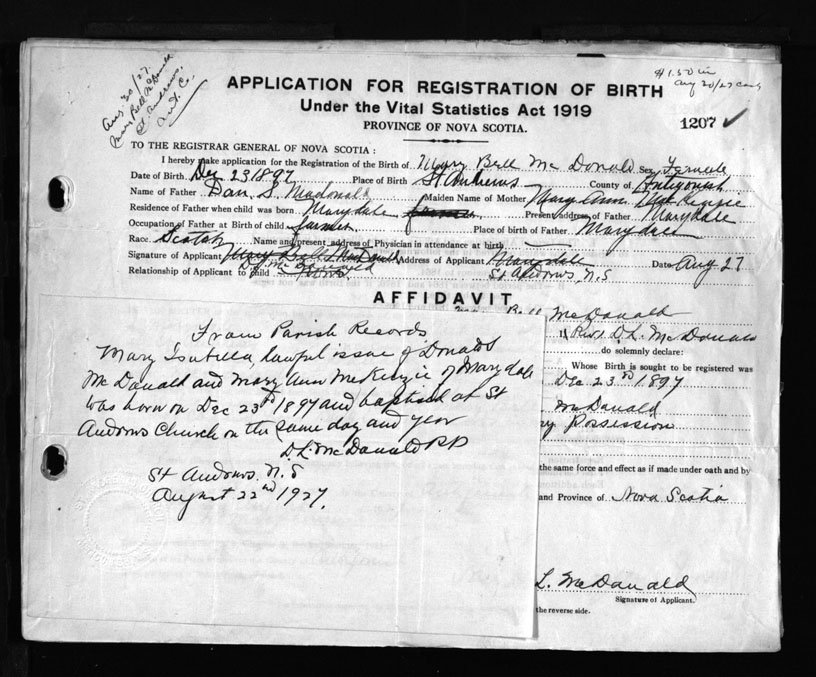 Aug. 30/27.
Mary Bell McDonald
St. Andrews,
Ant. Co.
$1.50 in
Aug 30/27
APPLICATION FOR REGISTRATION OF BIRTH
Under the Vital Statistics Act 1919
PROVINCE OF NOVA SCOTIA.
1207 ✓
TO THE REGISTRAR GENERAL OF NOVA SCOTIA :
I hereby make application for the Registration of the Birth of Mary Bell McDonald Sex Female
Date of Birth. Dec 23 1897 Place of Birth St. Andrews County of Antigonish
Name of Father Dan. S. Macdonald Maiden Name of Mother Mary Ann McKenzie
Residence of Father when child was born Marydale farmer Present Address of Father Marydale
Occupation of Father at Birth of child farmer Place of birth of Father Marydale
Race. Scotch Name and present address of Physician in attendance at birth —
Signature of Applicant Mary Bell MacDonald Address of Applicant Marydale Date Aug 27
Relationship of Applicant to child St Andrews, N.S
AFFIDAVIT
Bell McDonald
From Parish Records
Mary Isabella, lawful issue of Donald
McDonald and Mary Ann McKenzie of Marydale
was born on Dec 23rd 1897 and baptised at St
Andrews Church on the same day and year
D.L. McDonald P.P.
St Andrews. N.S
August 22nd 1927.
Rev. D.L. McDonald
do solemnly declare:
Whose Birth is sought to be registered was
Dec. 23rd 1897
McDonald
Possession
the same force and effect as if made under oath and by
and Province of Nova Scotia
L. McDonald
Signature of Applicant.
the reverse side.